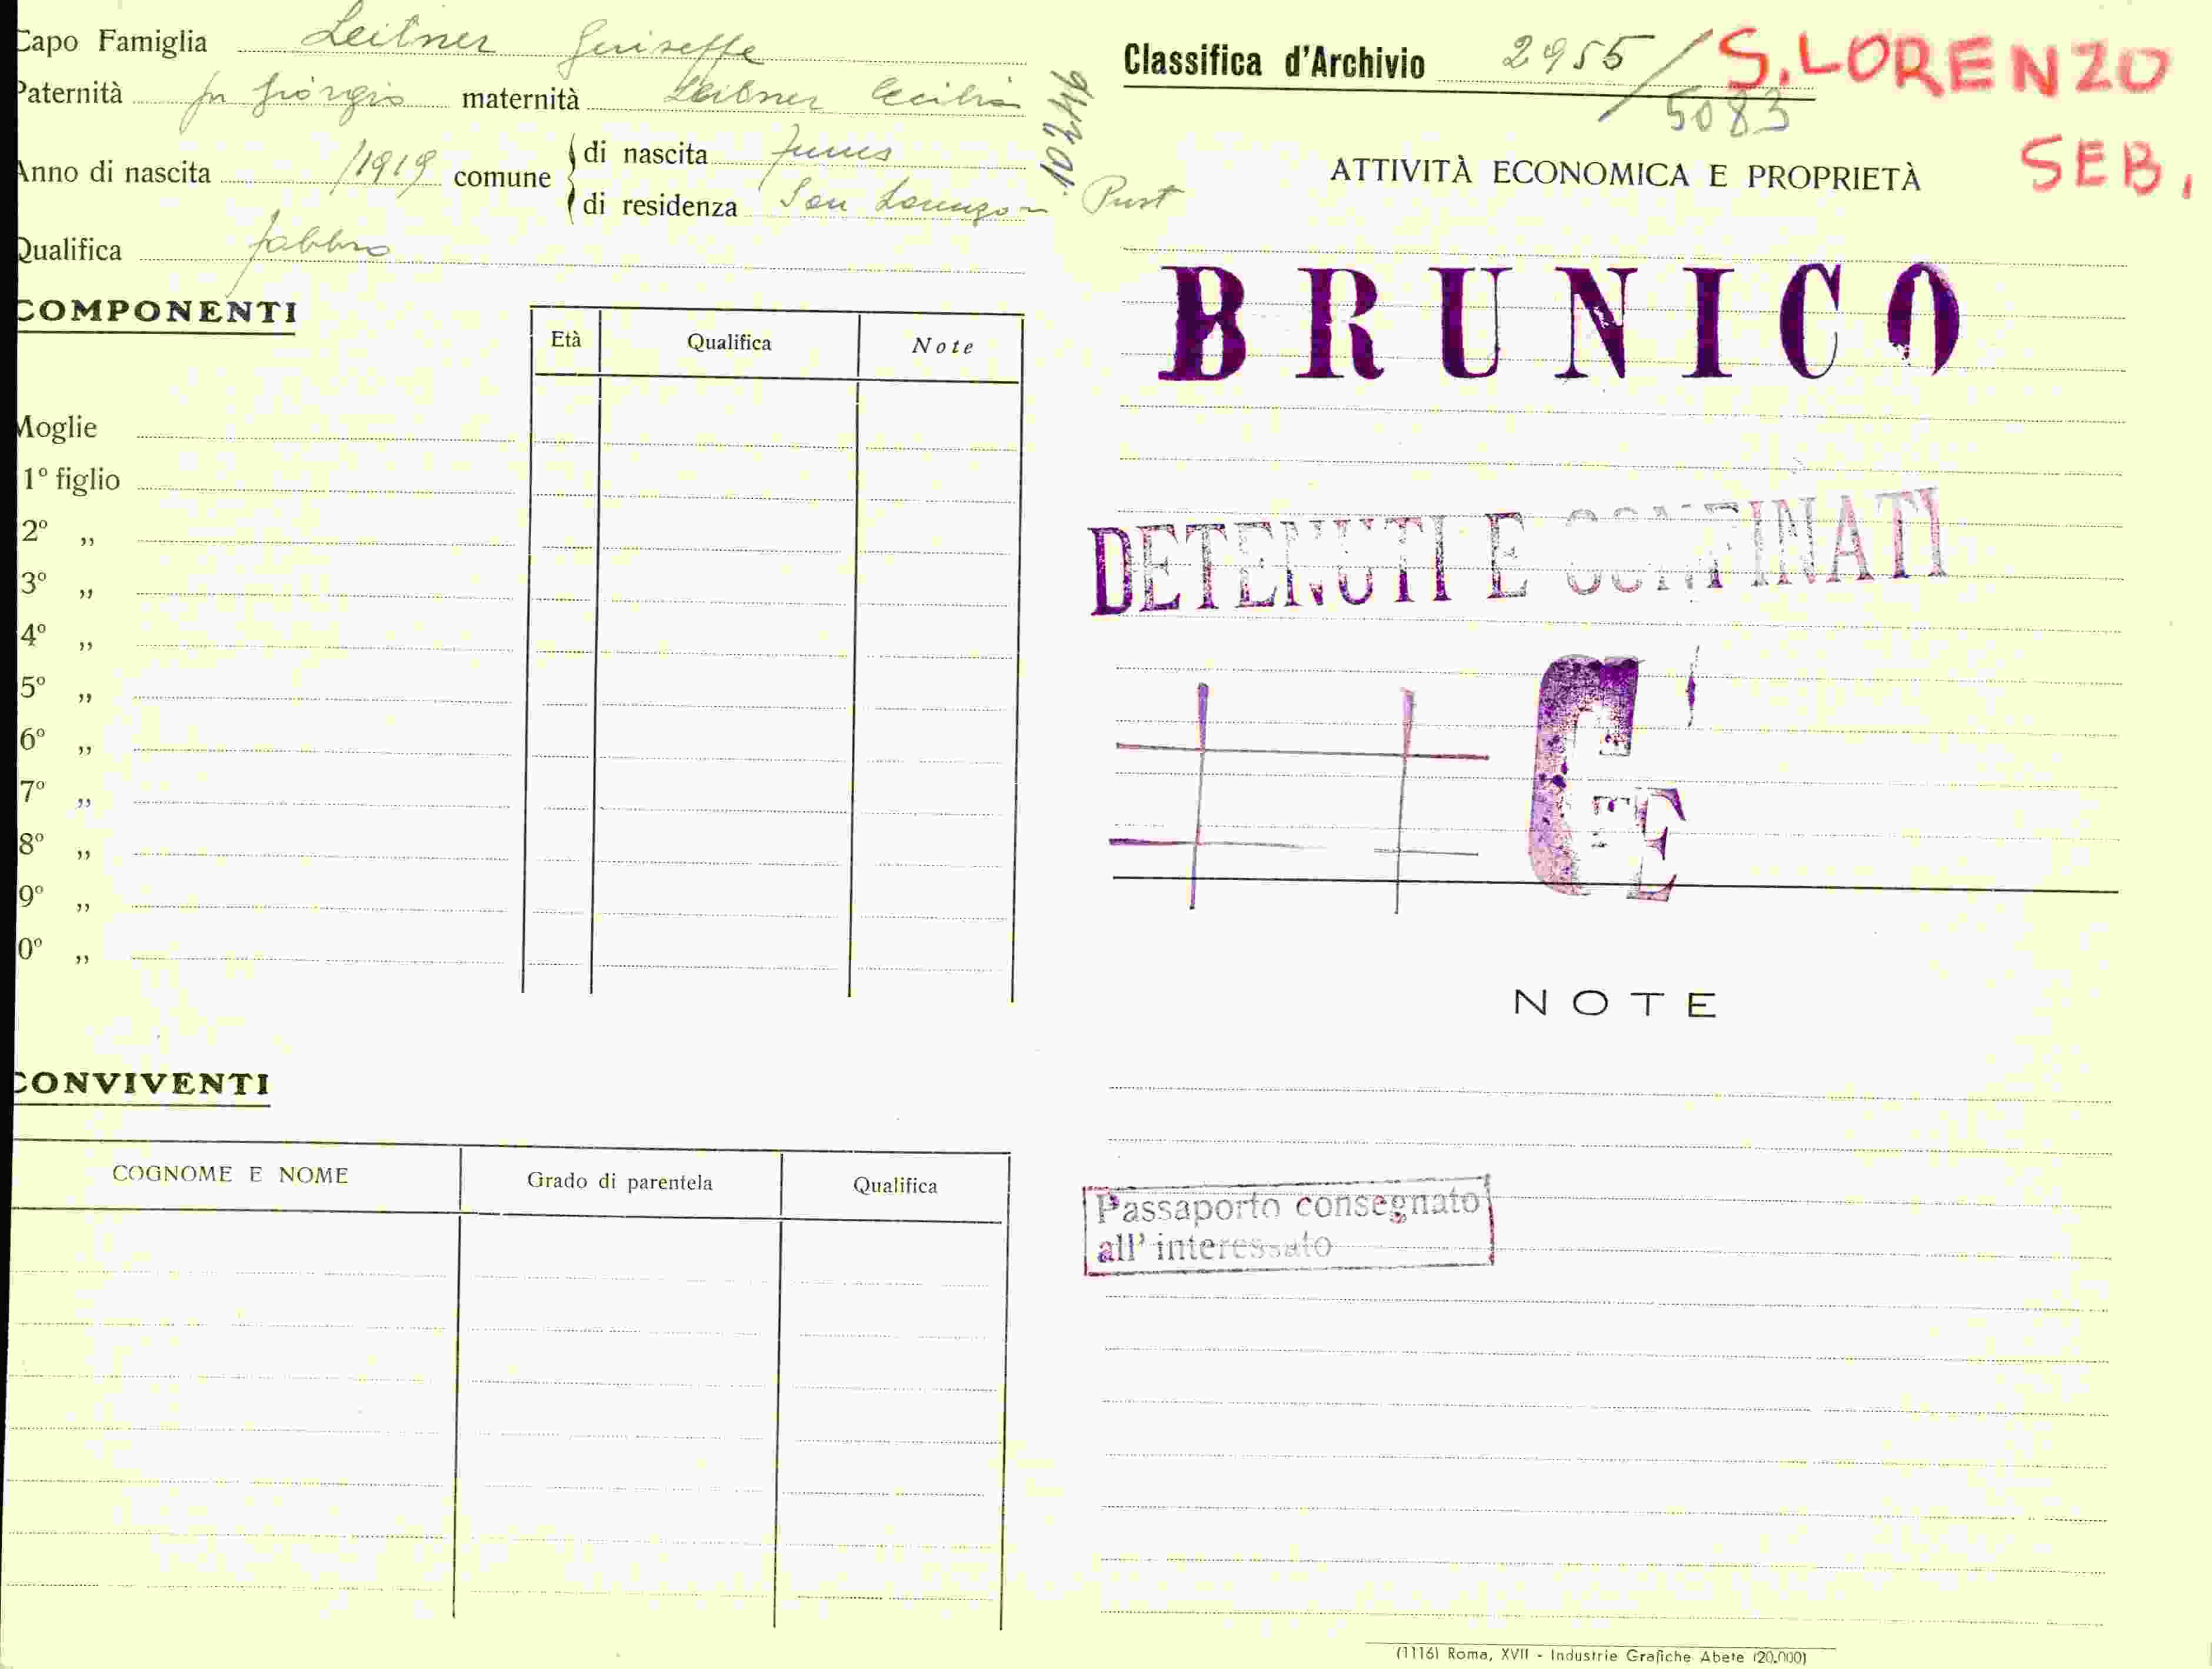 Capo Famiglia Leitner Giuseppe
Paternità fu Giorgio maternità Leitner Cecilia
Anno di nascita 1919 comune di nascita
di residenza San Lorenzo Pust
Qualifica fabbro
COMPONENTI
Età Qualifica Note
Moglie
1º figlio
2º „
3º „
4º „
5º „
6º „
7º „
8º „
9º „
0º „
CONVIVENTI
COGNOME E NOME Grado di parentela Qualifica
Classifica d'Archivio 2955/5083
S. LORENZO
SEB.
ATTIVITÀ ECONOMICA E PROPRIETÀ
BRUNICO
DETENUTI E CONFINATI
NOTE
Passaporto consegnato
all' interessato
(1116) Roma, XVII - Industrie Grafiche Abete (20.000)